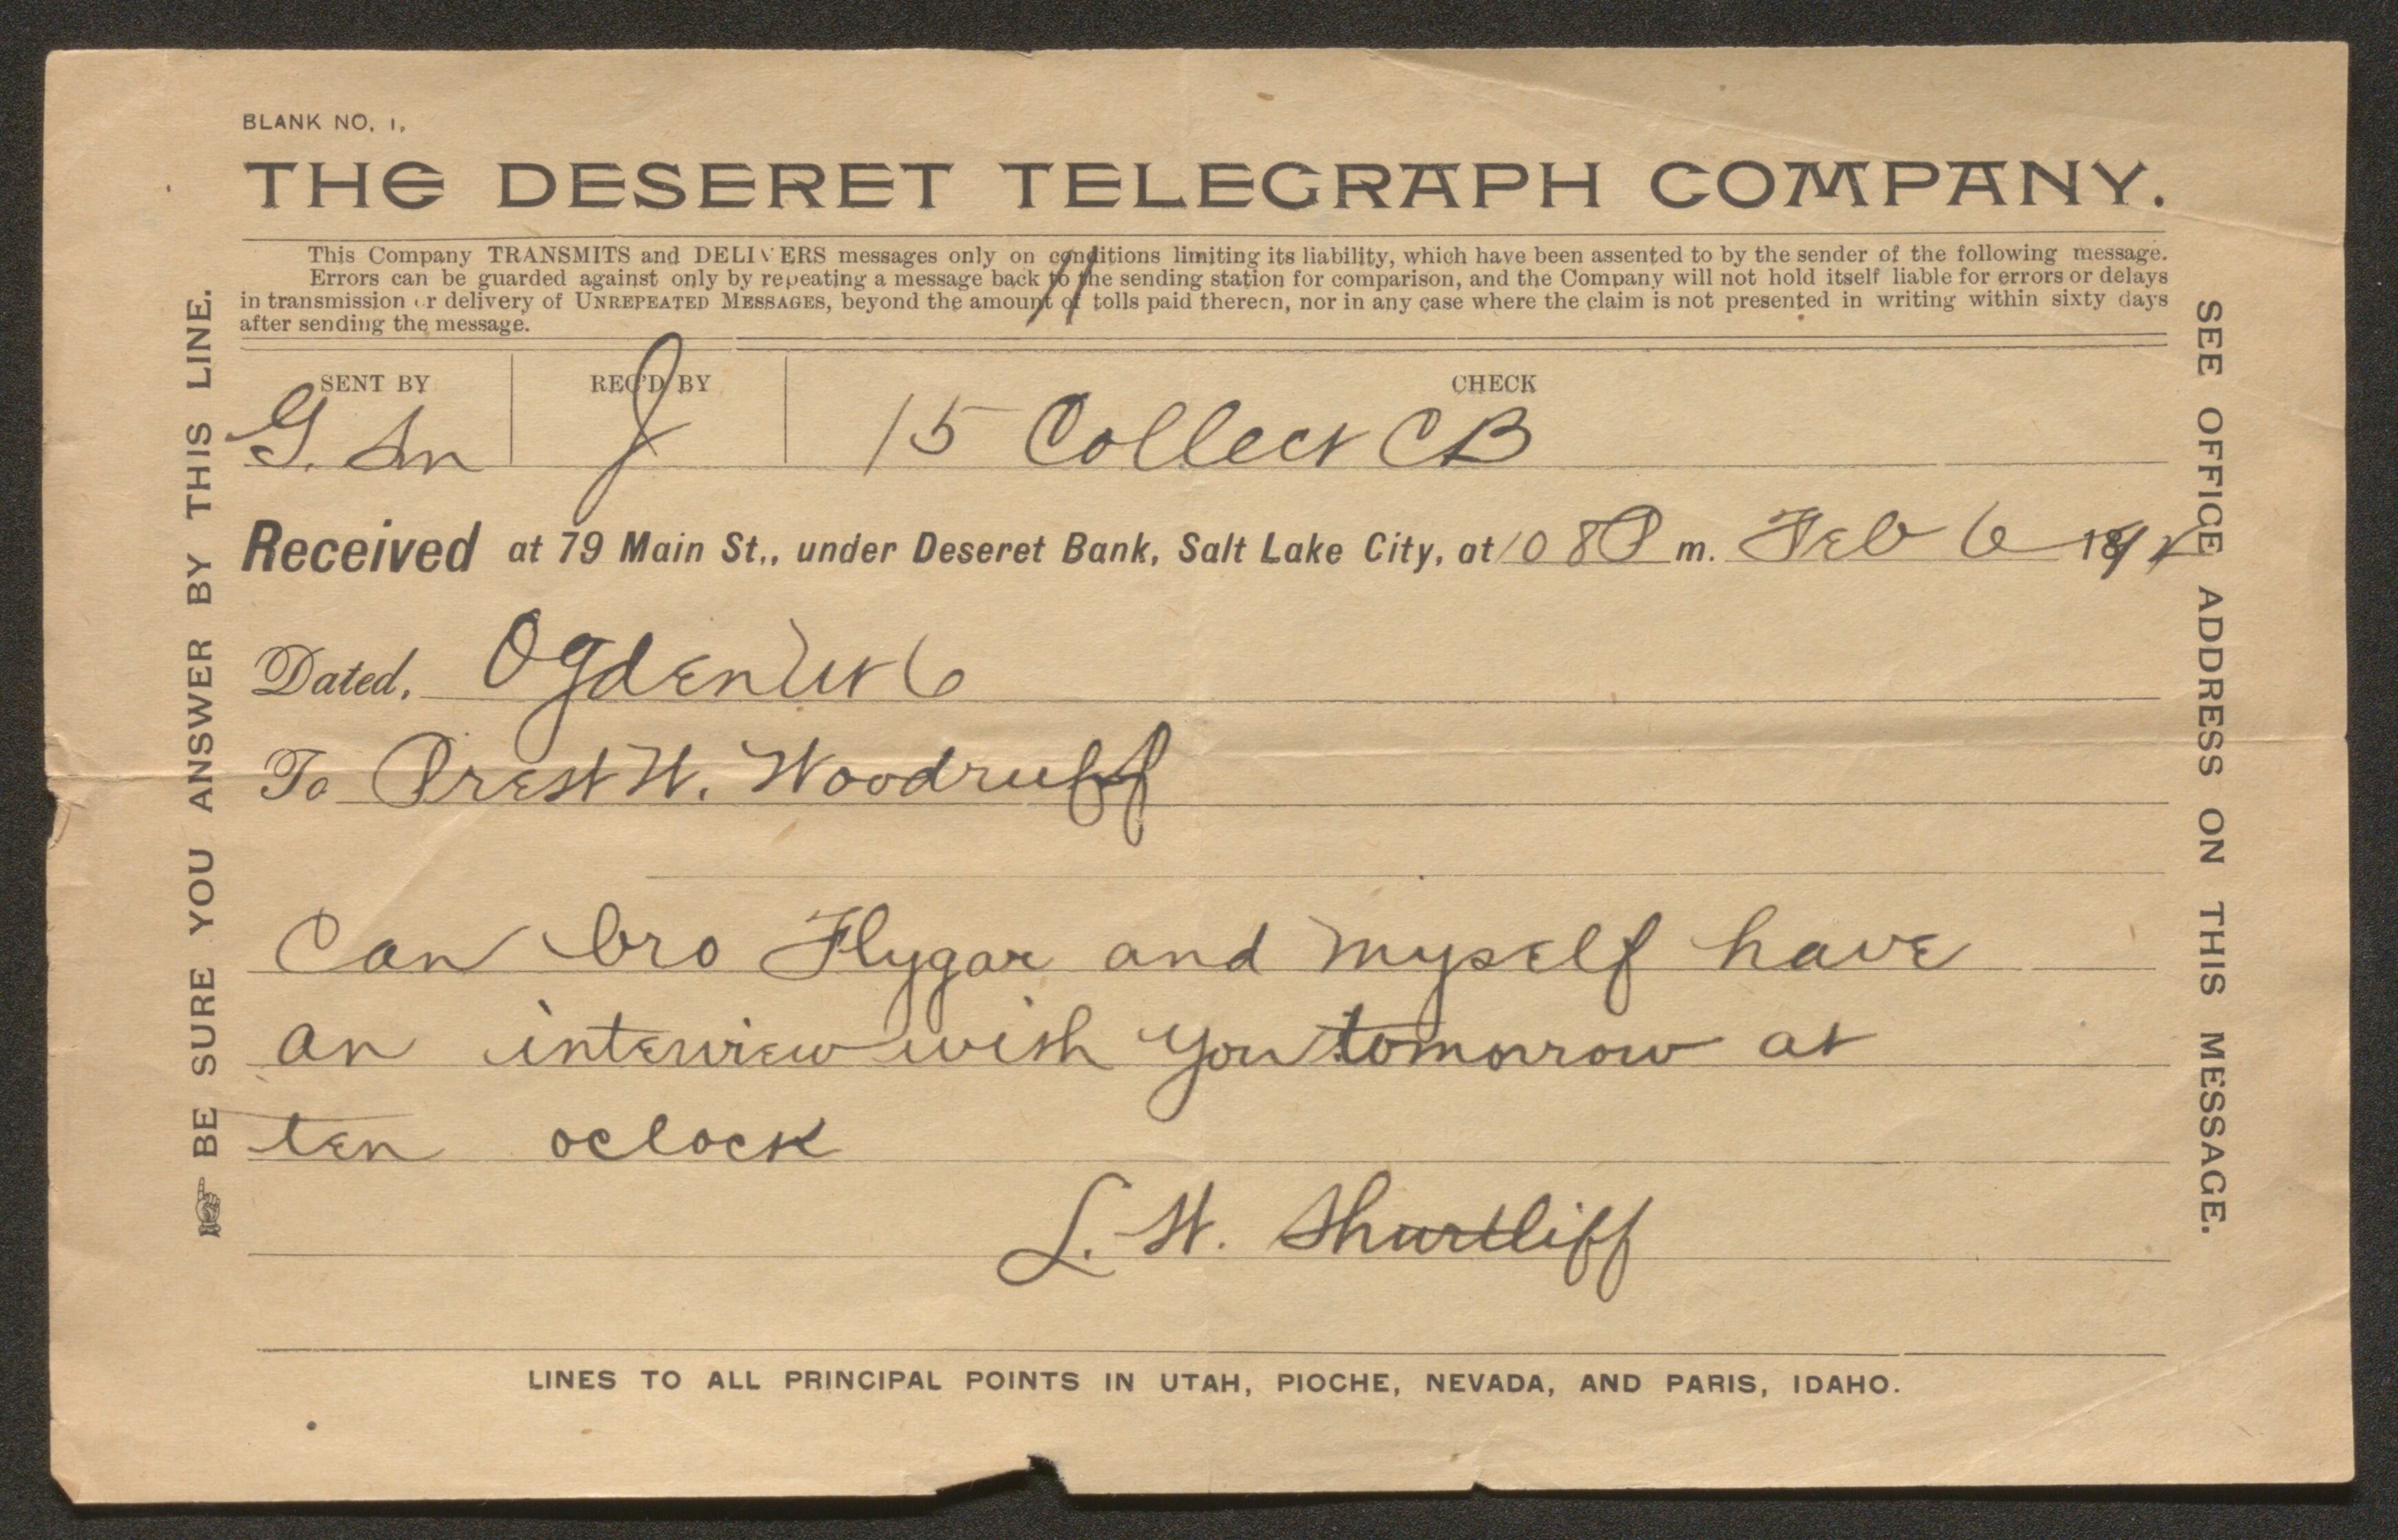 BLANK NO. 1.
THE DESERET TELEGRAPH COMPANY.
This Company TRANSMITS and DELIVERS messages only on conditions limiting its liability, which have been assented to by the sender of the following message.
Errors can be guarded against only by repeating a message back to the sending station for comparison, and the Company will not hold itself liable for errors or delays
in transmission or delivery of UNREPEATED MESSAGES, beyond the amount of tolls paid thereon, nor in any case where the claim is not presented in writing within sixty days
after sending the message.
SENT BY REC'D BY CHECK
G. J 15 Collect CB
Received at 79 Main St., under Deseret Bank, Salt Lake City, at 10 8 P m. Feb 6 189
Dated, Ogden Ut 6
To Prest W. Woodruff
Can bro Flygar and myself have
an interview with you tomorrow at
ten oclock
L. W. Shurtliff
LINES TO ALL PRINCIPAL POINTS IN UTAH, PIOCHE, NEVADA, AND PARIS, IDAHO.
BE SURE YOU ANSWER BY THIS LINE.
SEE OFFICE ADDRESS ON THIS MESSAGE.